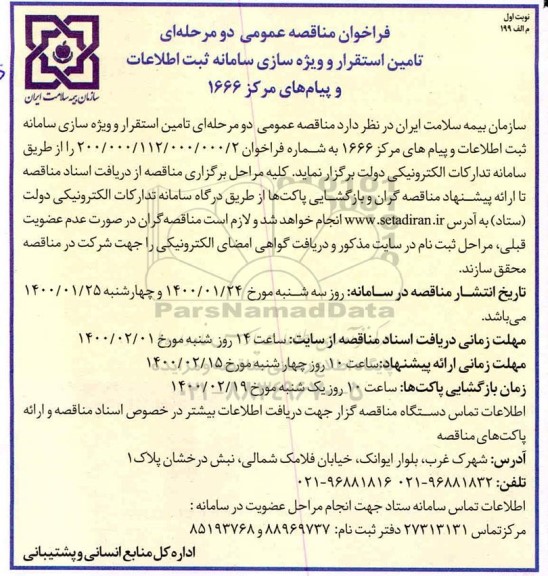 نوبت اول
م الف ۱۹۹
فراخوان مناقصه عمومی دو مرحله‌ای
تامین استقرار و ویژه سازی سامانه ثبت اطلاعات
و پیام‌های مرکز ۱۶۶۶
سازمان بیمه سلامت ایران
سازمان بیمه سلامت ایران در نظر دارد مناقصه عمومی دو مرحله‌ای تامین استقرار و ویژه سازی سامانه
ثبت اطلاعات و پیام های مرکز ۱۶۶۶ به شماره فراخوان ۲۰۰/۰۰۰/۱۱۲/۰۰۰/۰۰۰/۲ را از طریق
سامانه تدارکات الکترونیکی دولت برگزار نماید. کلیه مراحل برگزاری مناقصه از دریافت اسناد مناقصه
تا ارائه پیشنهاد مناقصه گران و بازگشایی پاکت‌ها از طریق درگاه سامانه تدارکات الکترونیکی دولت
(ستاد) به آدرس www.setadiran.ir انجام خواهد شد و لازم است مناقصه‌گران در صورت عدم عضویت
قبلی، مراحل ثبت نام در سایت مذکور و دریافت گواهی امضای الکترونیکی را جهت شرکت در مناقصه
محقق سازند.
تاریخ انتشار مناقصه در سامانه: روز سه شنبه مورخ ۱۴۰۰/۰۱/۲۴ و چهارشنبه ۱۴۰۰/۰۱/۲۵
می‌باشد.
ParsNamadData
مهلت زمانی دریافت اسناد مناقصه از سایت: ساعت ۱۴ روز شنبه مورخ ۱۴۰۰/۰۲/۰۱
مهلت زمانی ارائه پیشنهاد: ساعت ۱۰ روز چهارشنبه مورخ ۱۴۰۰/۰۲/۱۵
زمان بازگشایی پاکت‌ها: ساعت ۱۰ روز یک شنبه مورخ ۱۴۰۰/۰۲/۱۹
اطلاعات تماس دستگاه مناقصه گزار جهت دریافت اطلاعات بیشتر در خصوص اسناد مناقصه و ارائه
پاکت‌های مناقصه
آدرس: شهرک غرب، بلوار ایوانک، خیابان فلامک شمالی، نبش درخشان پلاک۱
تلفن: ۹۶۸۸۱۸۳۲-۰۲۱ ۹۶۸۸۱۸۱۶-۰۲۱
اطلاعات تماس سامانه ستاد جهت انجام مراحل عضویت در سامانه :
مرکز تماس ۲۷۳۱۳۱۳۱ دفتر ثبت نام: ۸۸۹۶۹۷۳۷ و ۸۵۱۹۳۷۶۸
اداره کل منابع انسانی و پشتیبانی